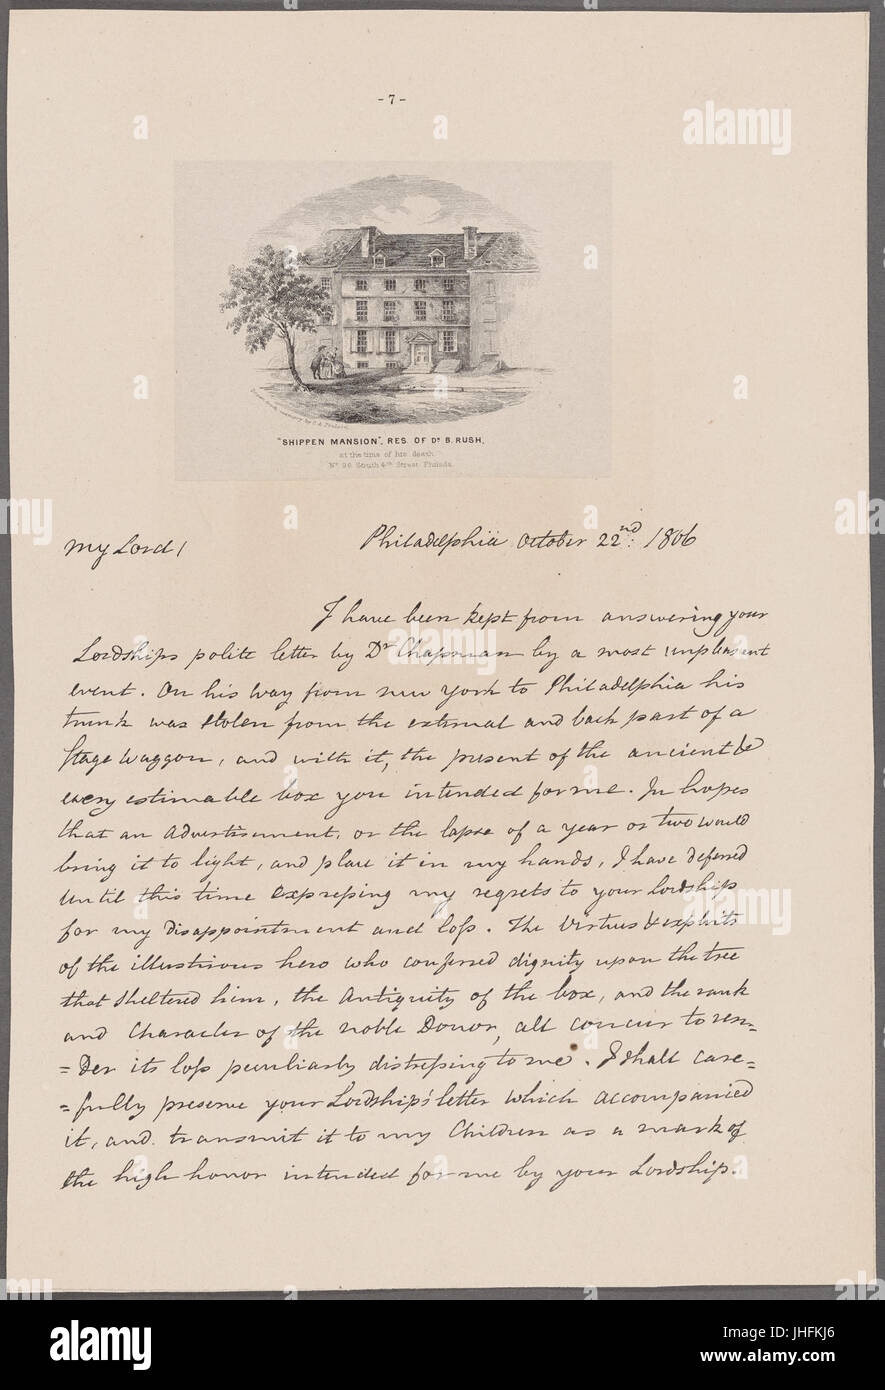 - 7 -
"SHIPPEN MANSION", RES. OF Dr B. RUSH,
at the time of his death
No 98 South 4th Street Philada
My Lord! Philadelphia October 22nd: 1806
I have been kept from answering your
Lordships polite letter by Dr Chapman by a most unpleasent
event. On his way from new york to Philadelphia his
trunk was stolen from the external and back part of a
stage waggon, and with it, the present of the ancient &
every estimable box you intended for me. In hopes
that an advertisement, or the lapse of a year or two would
bring it to light, and place it in my hands, I have deferred
until this time expressing my regrets to your lordship
for my disappointment and loss. The Virtues & exploits
of the illustrious hero who conferred dignity upon the tree
that sheltered him, the Antiquity of the box, and the rank
and character of the noble Donor, all concur to ren=
=der its loss peculiarly distressing to me. I shall care=
=fully preserve your Lordship's letter which accompanied
it, and transmit it to my Children as a mark of
the high honor intended for me by your Lordship.
alamy
alamy
alamy
Image ID: JHFKJ6
www.alamy.com